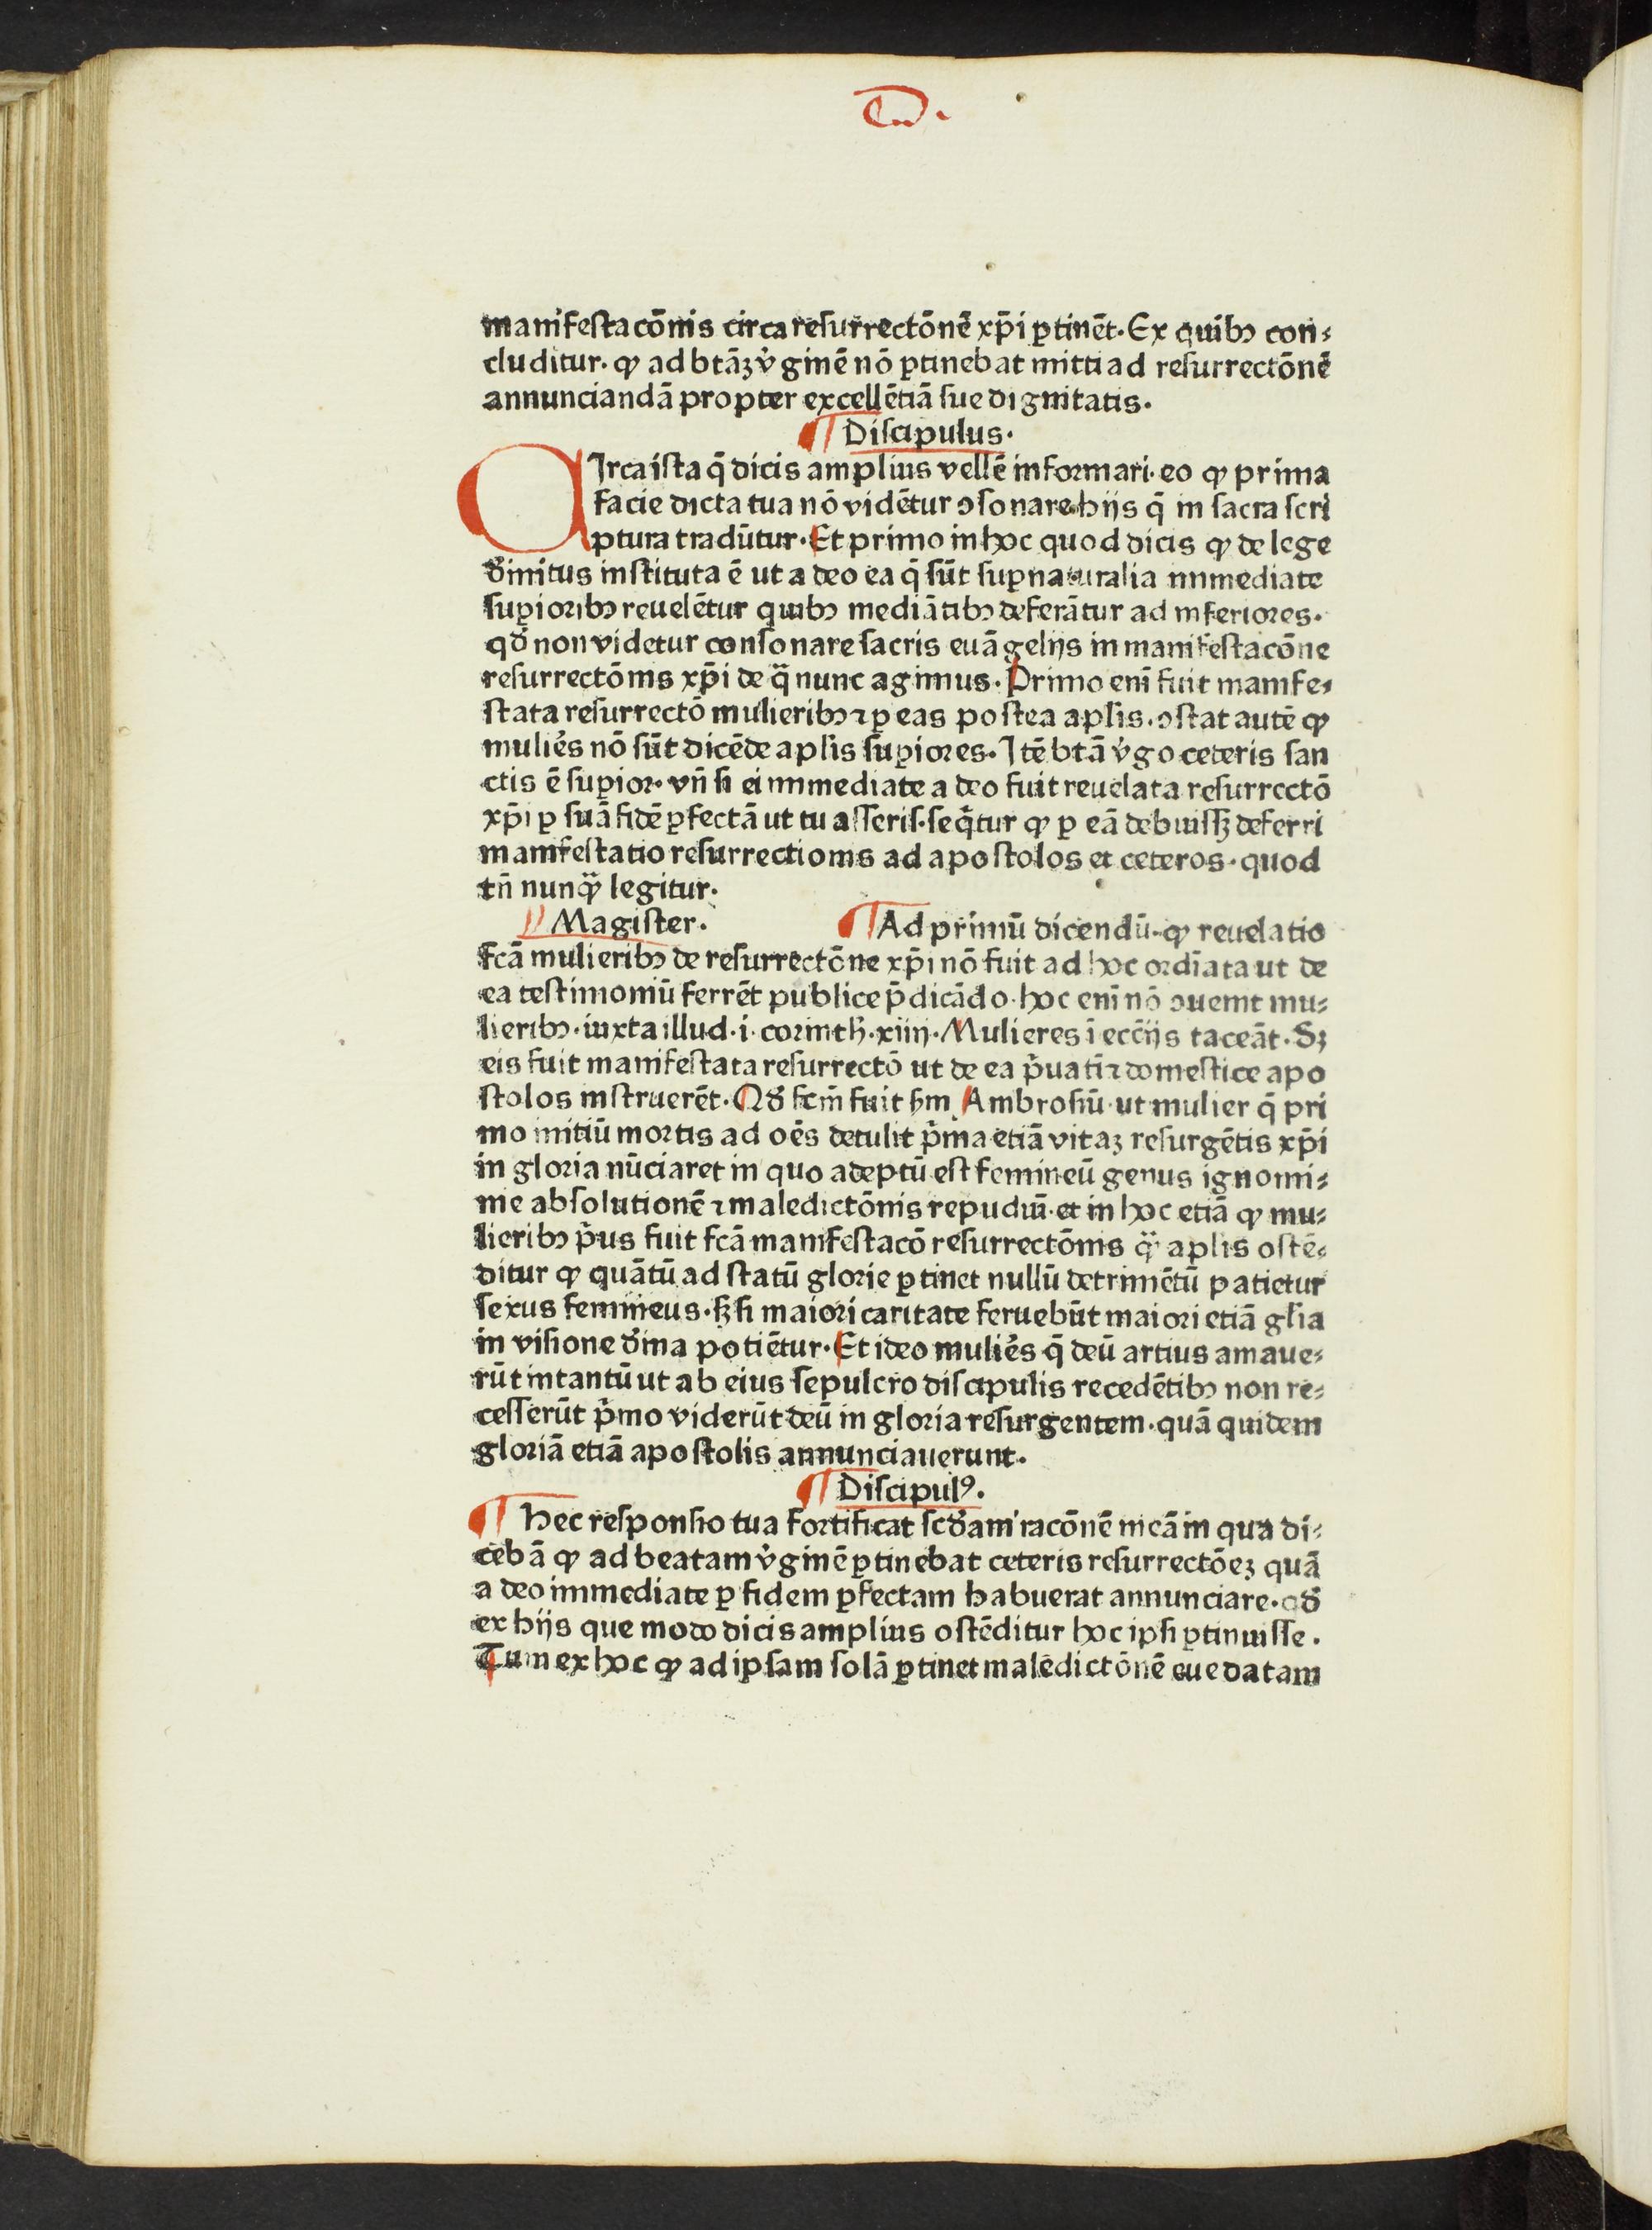 manifestacōnis circa resurrectōnē xp̄i ꝑtinēt. Ex quibꝫ con⸗
cluditur. ꝙ ad btāꝫ v̓ginē nō ꝑtinebat mitti ad resurrectōnē
annunciandā propter excellētiā sue dignitatis.
¶ Discipulus.
CIrca ista q̄ dicis amplius vellē informari. eo ꝙ prima
facie dicta tua nō vidētur ↄsonare hijs q̄ in sacra scri
ptura tradūtur. Et primo in hoc quod dicis ꝙ de lege
d̓initus instituta ē ut a deo ea q̄ sūt suꝑnaturalia immediate
suꝑioribꝫ reuelētur quibꝫ mediātibꝫ deferātur ad inferiores.
qd̓ non videtur consonare sacris euāgelijs in manifestacōne
resurrectōnis xp̄i de q̈̄ nunc agimus. Primo enī fuit manife⸗
stata resurrectō mulieribꝫ ⁊ ꝑ eas postea apl̄is. ↄstat autē ꝙ
mulie̓s nō sūt dicēde apl̄is suꝑiores. Itē btā v̓go ceteris san
ctis ē suꝑior. vn̄ si ei immediate a deo fuit reuelata resurrectō
xp̄i ꝑ suā fidē ꝑfectā ut tu asseris. seq̄tur ꝙ ꝑ eā debuissꝫ deferri
manifestatio resurrectionis ad apostolos et ceteros. quod
tn̄ nunꝙ̈ legitur.
¶ Magister. ¶ Ad primū dicendū. ꝙ reuelatio
fcā mulieribꝫ de resurrectōne xp̄i nō fuit ad hoc ordīata ut de
ea testimoniū ferrēt publice p̄dicādo. hoc enī nō ↄuenit mu⸗
lieribꝫ. iuxta illud. i. corinth̄. xiiij. Mulieres ī eccīijs taceāt. Sꝫ
eis fuit manifestata resurrectō ut de ea p̓uatī ⁊ domestice apo
stolos instruerēt. Qd̓ fcm̄ fuit scm̄ Ambrosiū. ut mulier q̄ pri
mo initiū mortis ad oēs detulit p̓ma etiā vitaꝫ resurgētis xp̄i
in gloria nūciaret in quo adeptū est femineū genus ignomi⸗
nie absolutionē ⁊ maledictōnis repudiū. et in hoc etiā ꝙ mu⸗
lieribꝫ p̓us fuit fcā manifestacō resurrectōnis q̈̄ apl̄is ostē⸗
ditur ꝙ quātū ad statū glorie ꝑtinet nullū detrimētū patietur
sexus femineus. sꝫ si maiori caritate feruebūt maiori etiā gl̄ia
in visione d̓ina potiētur. Et ideo mulie̓s q̄ deū artius amaue⸗
rūt intantū ut ab eius sepulcro discipulis recedētibꝫ non re⸗
cesserūt p̓mo viderūt deū in gloria resurgentem. quā quidem
gloriā etiā apostolis annunciauerunt.
¶ Discipulꝰ.
¶ Hec responsio tua fortificat scd̓am racōnē meā in qua di⸗
cebā ꝙ ad beatam v̓ginē ꝑtinebat ceteris resurrectōeꝫ quā
a deo immediate ꝑ fidem ꝑfectam habuerat annunciare. qd̓
ex hijs que modo dicis amplius ostēditur hoc ipsi ꝑtinuisse.
Tum ex hoc ꝙ ad ipsam solā ꝑtinet maledictōnē eue datam